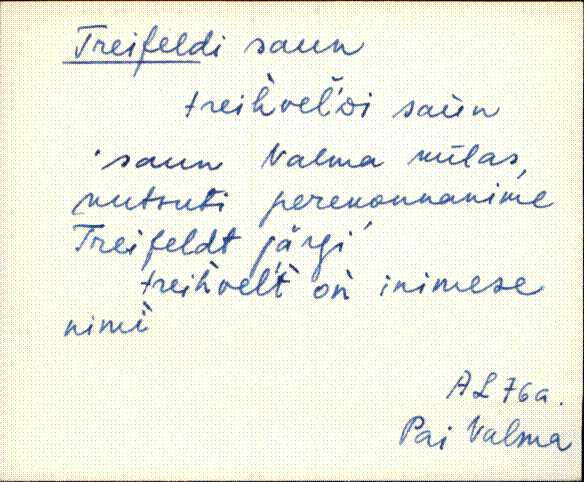 Treifeldi saun
treìhvel'di saùn
'saun Valma külas,
kutsuti perekonnanime
Treifeldt järgi
treìhvel't òn inimese
nimì
AL 76a.
Pai Valma